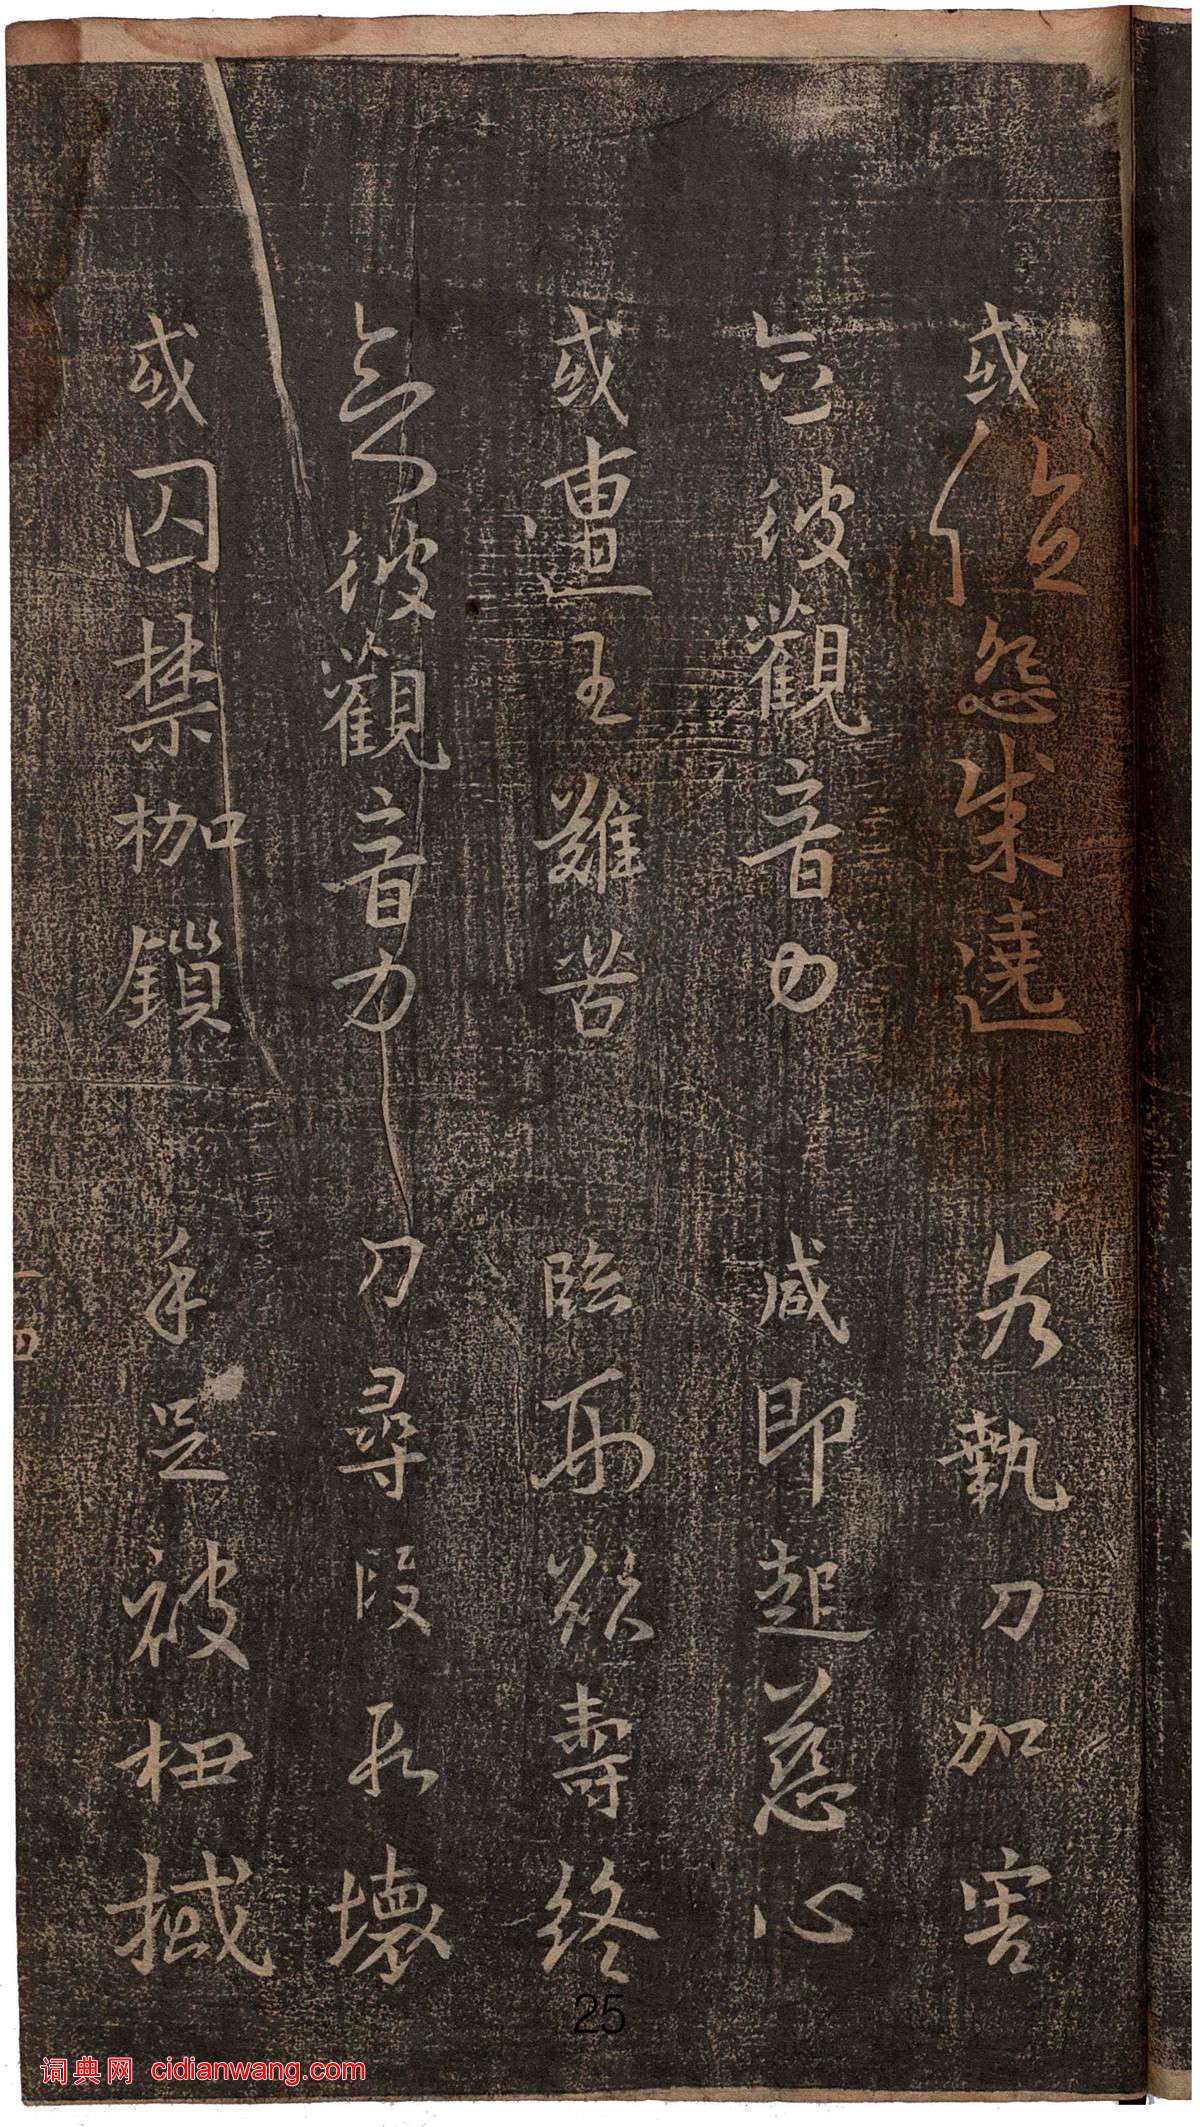 或值怨賊遶　各執刀加害
念彼觀音力　咸即起慈心
或遭王難苦　臨刑欲壽終
念彼觀音力　刀尋段段壞
或囚禁枷鎖　手足被杻械
25
词典网 cidianwang.com